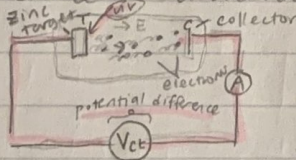 zinc
target T
UV
→ E
C
collector
electrons
A
potential difference